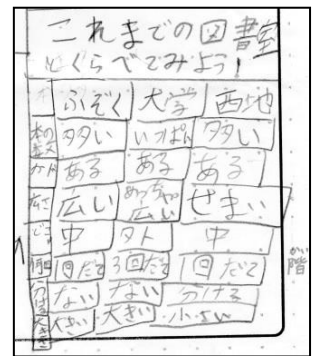 これまでの図書室
とくらべてみよう!
ふぞく 大学 西地
本の数 多い いっぱん 多い
ある ある ある
広さ 広い めっちゃ広い せまい
どこ 中 外 中
何回 1回だて 3回だて 1回だて
分ける ない ない 分ける
大きさ 大きい 大きい 小さい
階 かい